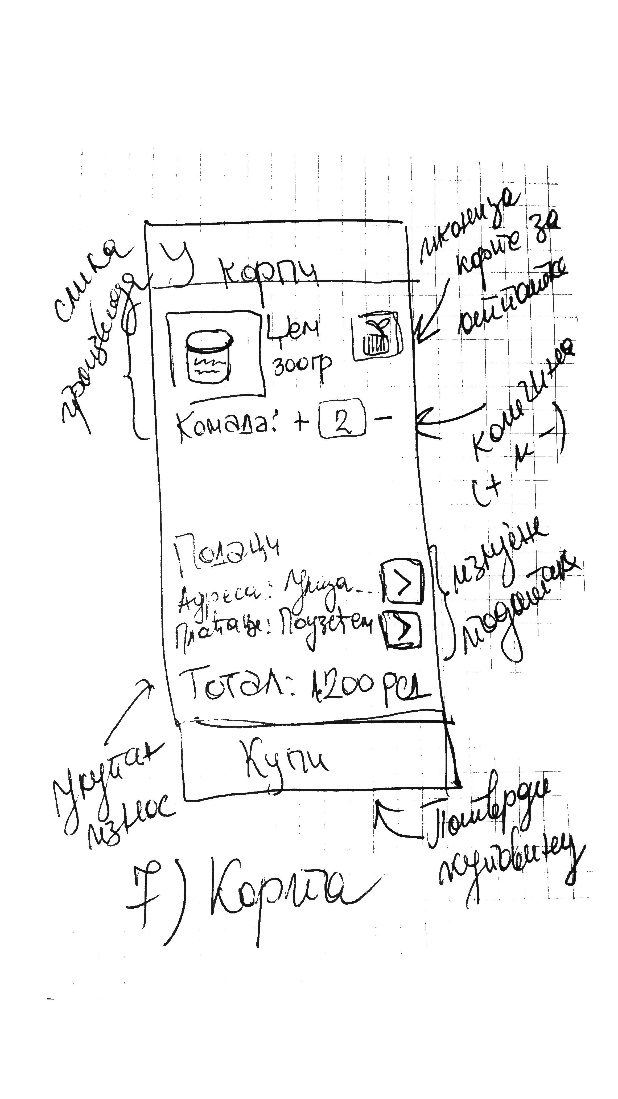 У корпи
слика
производа
Џем
300гр
иконица
корпе за
отпатке
Комада: + 2 -
количина
(+ и -)
Подаци
Адреса: Улица...
Плаћање: Поузећем
измјене
података
Тотал: 1.200 рсд
Укупан
износ
Купи
Потврди
куповину
7) Корпа